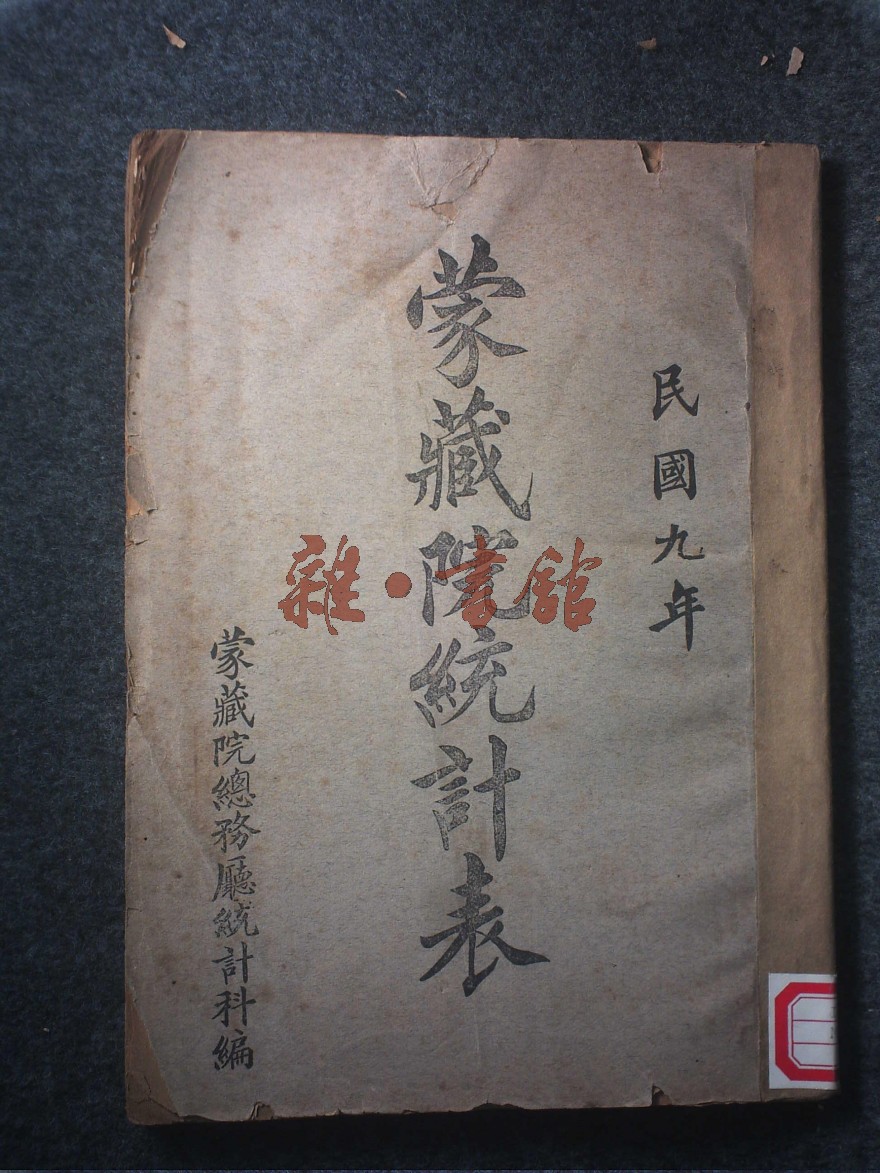 民國九年
蒙藏院統計表
蒙藏院總務廳統計科編
雜·書館